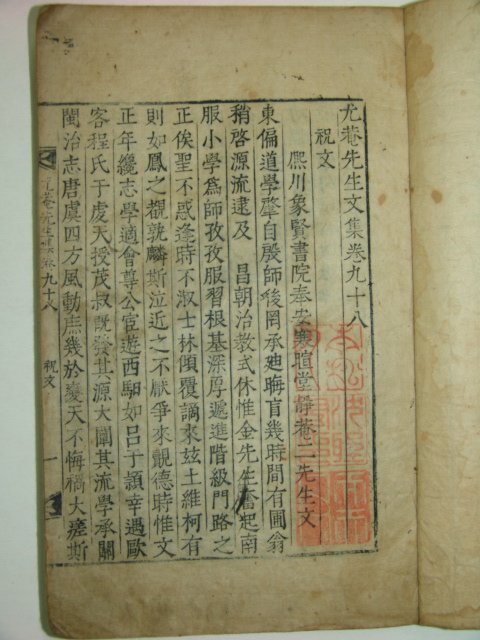 尤菴先生文集卷九十八
祝文
熙川象賢書院奉安寒暄堂靜菴二先生文
東偏道學肇自殷師嗟罔承廸晦盲幾時間有圃翁
稍啓源流逮及 昌朝治敎式休惟金先生奮起南
服小學爲師孜孜服習根基深厚遞進階級門路之
正俟聖不惑逢時不淑士林傾覆謫來玆土維柯有
則如鳳之覿敦麟斯泣近之不厭爭來觀德時惟文
正年纔志學適會尊公宦遊西馹如呂于潁幸遇歐
客程氏于虔天授茂叔旣發其源大闡其流學承關
閩治志唐虞四方風動庶幾於變天不悔禍大瘥斯
尤菴先生文集卷九十八 祝文 一